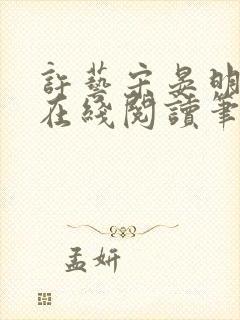 許藝宋晏明
在綫閱讀筆
孟妍